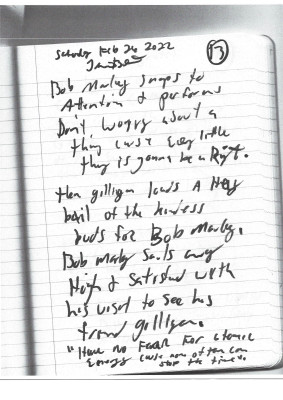 Saturday Feb 26 2022
13
Bob Marley snaps to
Attention & performs
Don't worry about a
thing cause Every little
thing is gonna be a Right.
then gilligan loads A Hey
bail of the kindess
buds for Bob Marley.
Bob Marly Sails away
High & Satisfied with
his visit to see his
friend gilligan.
"Have no Fear For atomic
Energy cause non of them can
stop the time".